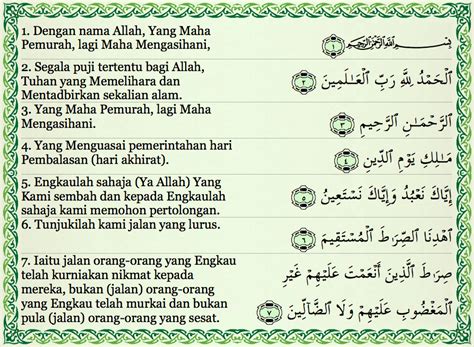 1. Dengan nama Allah, Yang Maha
Pemurah, lagi Maha Mengasihani,
بِسْمِ ٱللَّهِ ٱلرَّحْمَـٰنِ ٱلرَّحِيمِ ١
2. Segala puji tertentu bagi Allah,
Tuhan yang Memelihara dan
Mentadbirkan sekalian alam.
ٱلْحَمْدُ لِلَّهِ رَبِّ ٱلْعَـٰلَمِينَ ٢
3. Yang Maha Pemurah, lagi Maha
Mengasihani.
ٱلرَّحْمَـٰنِ ٱلرَّحِيمِ ٣
4. Yang Menguasai pemerintahan hari
Pembalasan (hari akhirat).
مَـٰلِكِ يَوْمِ ٱلدِّينِ ٤
5. Engkaulah sahaja (Ya Allah) Yang
Kami sembah dan kepada Engkaulah
sahaja kami memohon pertolongan.
إِيَّاكَ نَعْبُدُ وَإِيَّاكَ نَسْتَعِينُ ٥
6. Tunjukilah kami jalan yang lurus.
ٱهْدِنَا ٱلصِّرَٰطَ ٱلْمُسْتَقِيمَ ٦
7. Iaitu jalan orang-orang yang Engkau
telah kurniakan nikmat kepada
mereka, bukan (jalan) orang-orang
yang Engkau telah murkai dan bukan
pula (jalan) orang-orang yang sesat.
صِرَٰطَ ٱلَّذِينَ أَنْعَمْتَ عَلَيْهِمْ غَيْرِ
ٱلْمَغْضُوبِ عَلَيْهِمْ وَلَا ٱلضَّآلِّينَ ٧